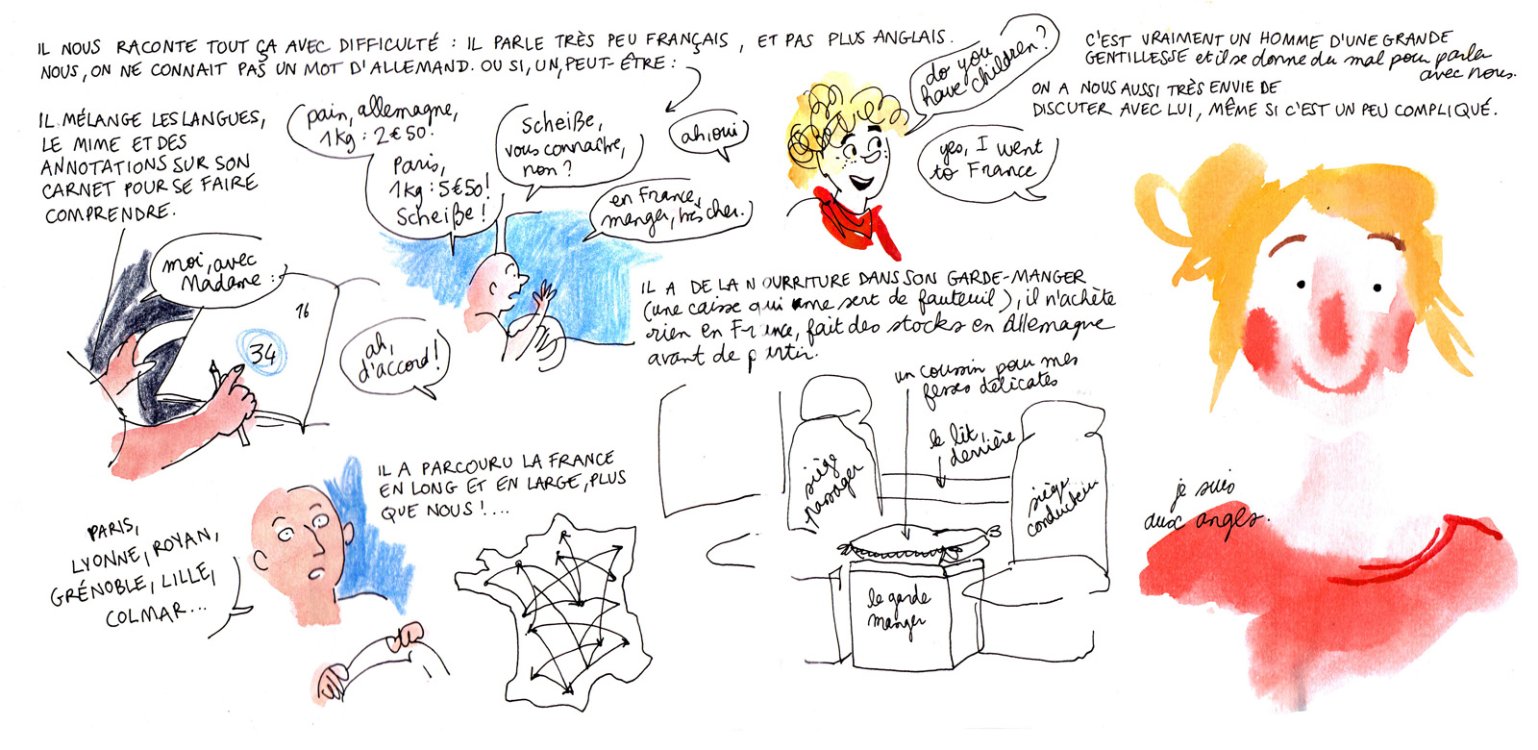 IL NOUS RACONTE TOUT ÇA AVEC DIFFICULTÉ : IL PARLE TRÈS PEU FRANÇAIS, ET PAS PLUS ANGLAIS.
NOUS, ON NE CONNAIT PAS UN MOT D'ALLEMAND. OU SI, UN, PEUT-ÊTRE :
IL MÉLANGE LES LANGUES,
LE MIME ET DES
ANNOTATIONS SUR SON
CARNET POUR SE FAIRE
COMPRENDRE.
pain, allemagne,
1kg : 2€50!
Paris,
1kg : 5€50!
Scheiße !
scheiße,
vous connaître,
non ?
ah, oui
en France,
manger, très cher.
do you
have children?
yes, I went
to France
C'EST VRAIMENT UN HOMME D'UNE GRANDE
GENTILLESSE et il se donne du mal pour parler
avec nous.
ON A NOUS AUSSI TRÈS ENVIE DE
DISCUTER AVEC LUI, MÊME SI C'EST UN PEU COMPLIQUÉ.
moi, avec
Madame :
16
34
ah,
d'accord !
IL A DE LA NOURRITURE DANS SON GARDE-MANGER
(une caisse qui me sert de fauteuil), il n'achète
rien en France, fait des stocks en Allemagne
avant de partir.
un coussin pour mes
fesses délicates
le lit,
derrière
siège
passager
siège
conducteur
le garde
manger
IL A PARCOURU LA FRANCE
EN LONG ET EN LARGE, PLUS
QUE NOUS !...
PARIS,
LYONNE, ROYAN,
GRÉNOBLE, LILLE,
COLMAR...
je suis
aux anges.